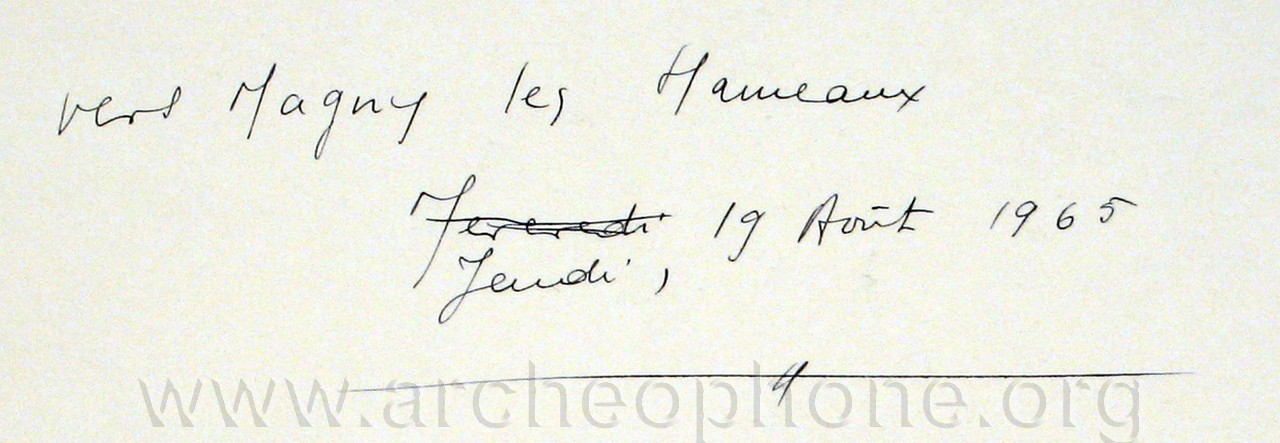 vers Magny les Hameaux
Mercredi 19 Août 1965
Jeudi,
www.archeophone.org